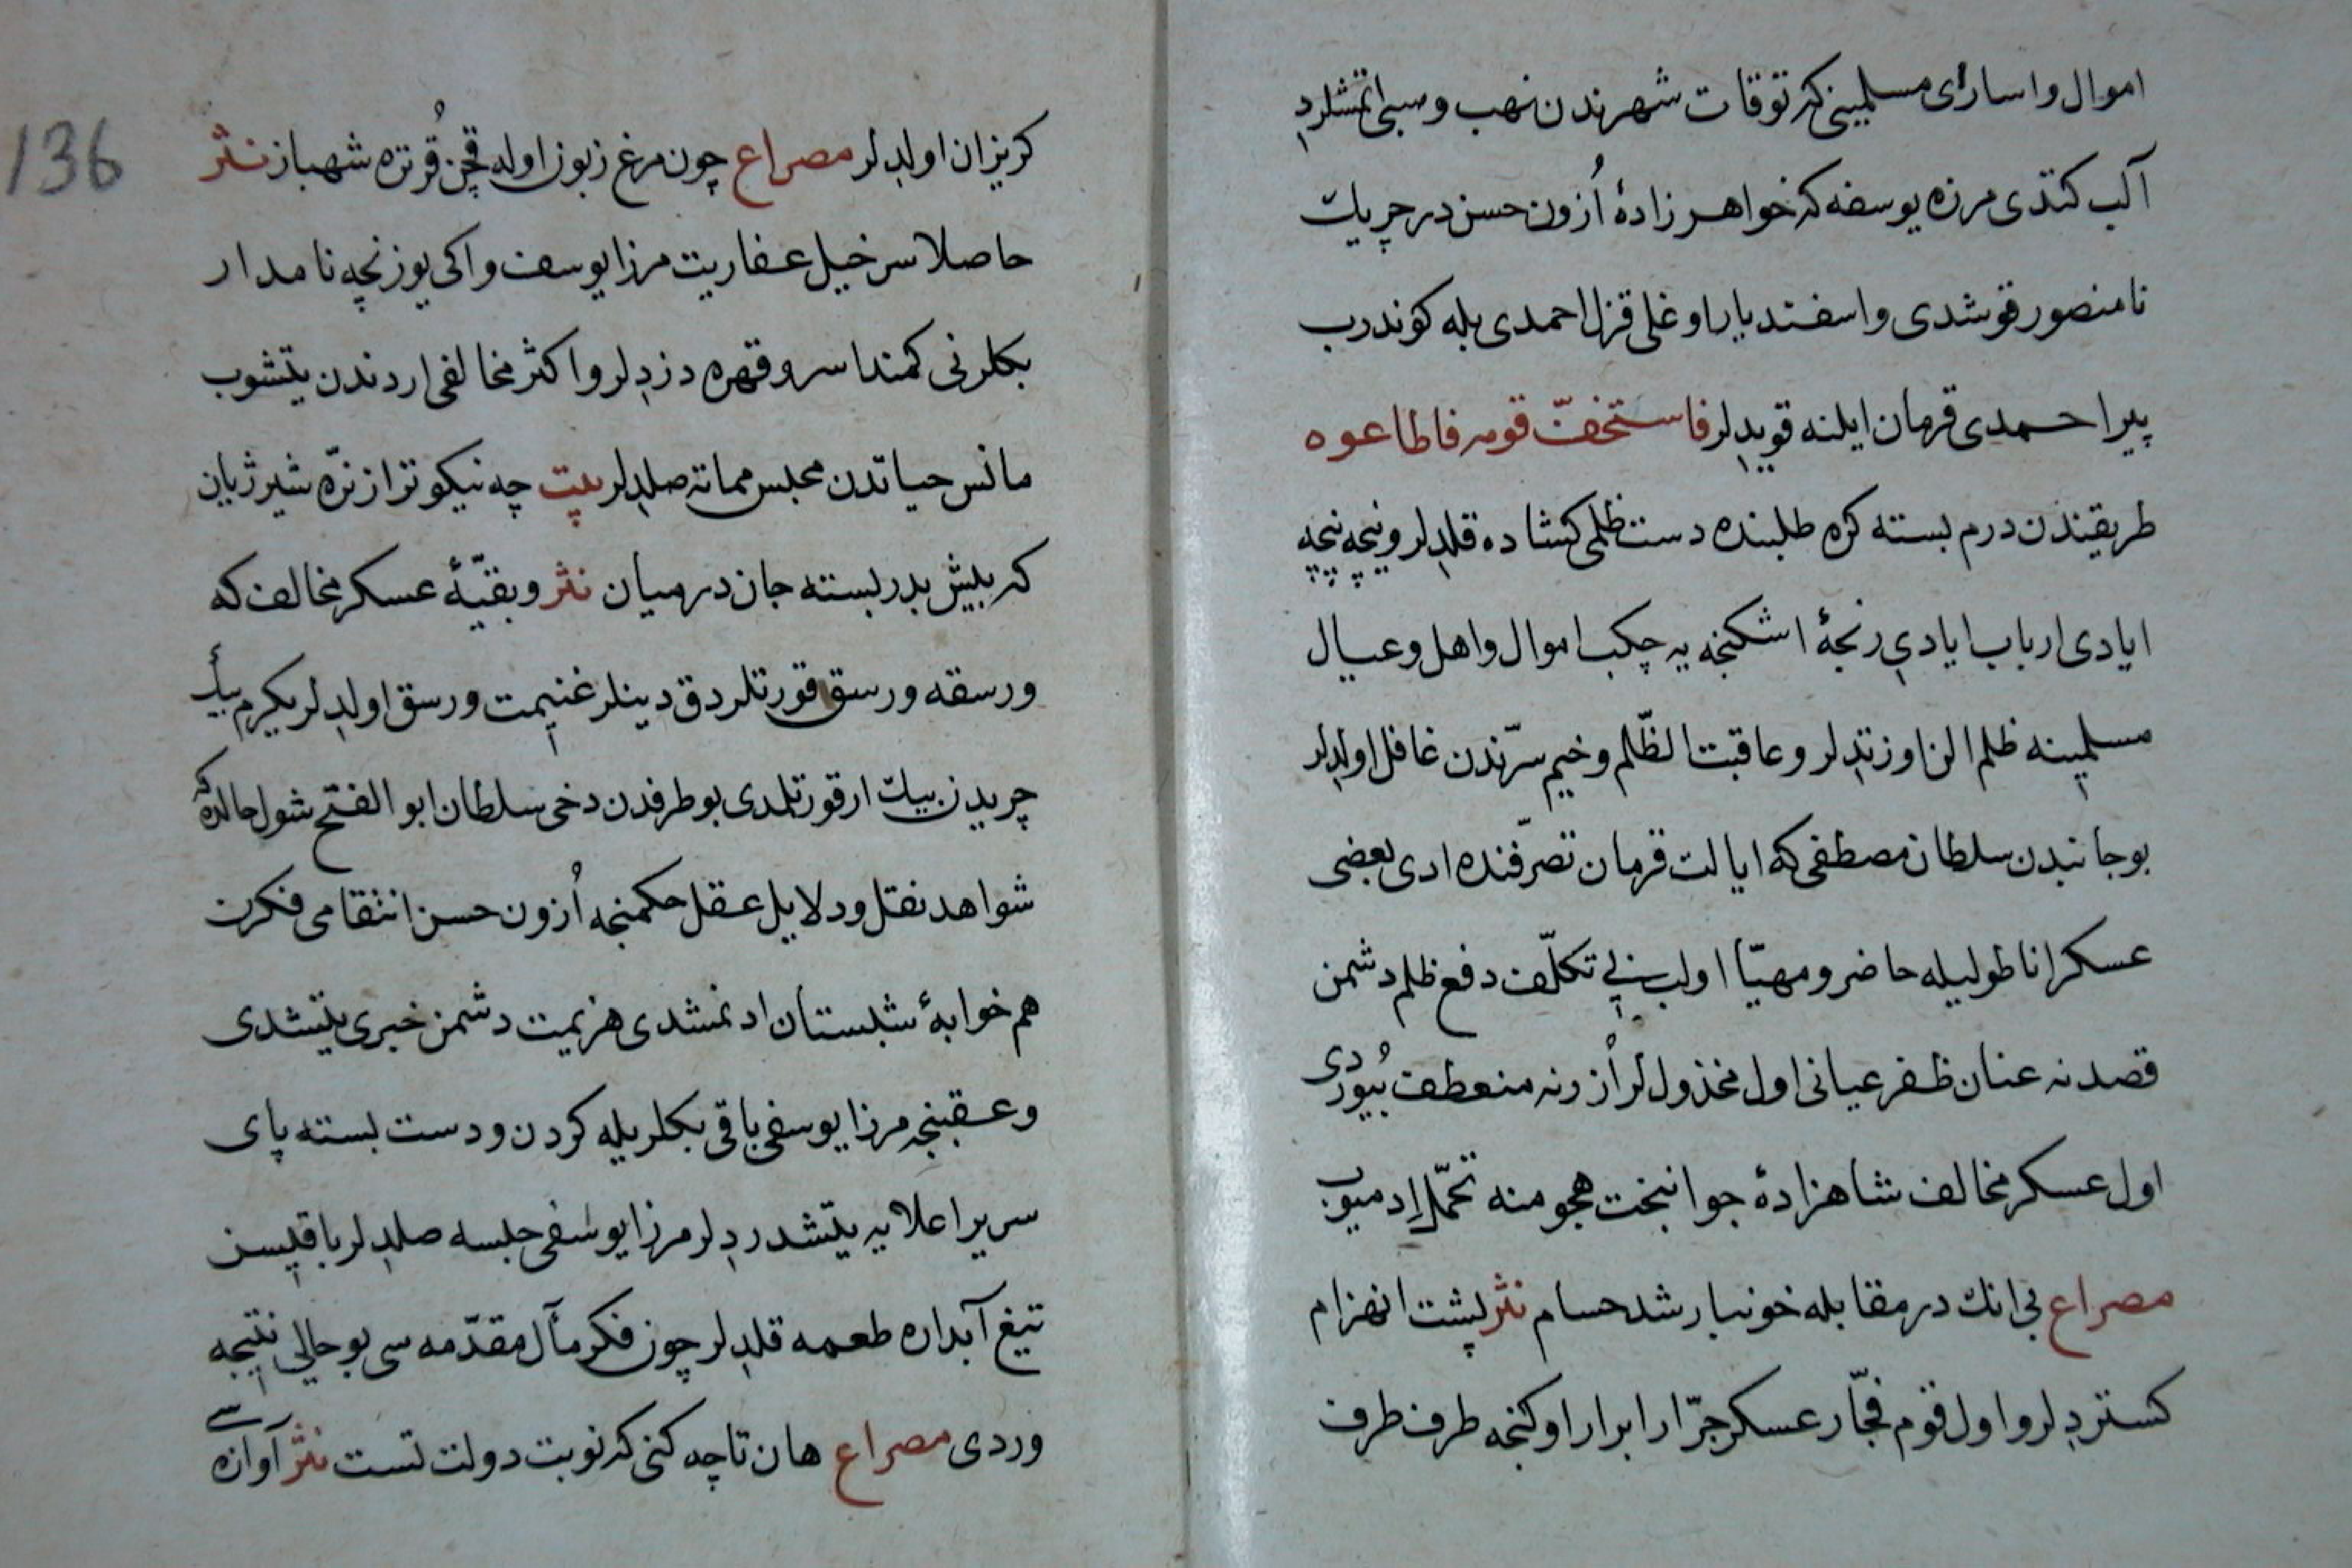 اموال و اسارای مسلمینی که توقات شهرندن نهب و سبی اتمشلردی
آلب کتدی مرزه یوسفه که خواهر زادهٔ اُزون حسن در چریك
نامنصور قوشدی و اسفندیار اوغلی قزل احمدی بله کوندرب
پیر احمدی قرمان ایلنه قویدلر فاستخفّ قومه فاطاعوه
طریقندن درم بسته کره طلبنده دست ظلمی کشاده قلدلر و نیچه نیچه
ایادی ارباب ایادیی رنجهٔ اشکنجه یه چکب اموال و اهل و عیال
مسلمینه ظلم الن اوزتدلر و عاقبت الظّلم وخیم سرّندن غافل اولدلر
بو جانبدن سلطان مصطفی که ایالت قرمان تصرّفنده ادی بعضی
عسکر اناطولیله حاضر و مهیّا اولب بی تکلّف دفع ظلم دشمن
قصدنه عنان ظفر عیانی اول مخذوللر اُزرنه منعطف بُیوردی
اول عسکر مخالف شاهزادهٔ جوانبخت هجومنه تحمّل ادمیوب
مصراع بی انك در مقابله خونبار شد حسام نثر پشت انهزام
کستردلر و اول قوم فجّار عسکر جرّار ابرار اوکنجه طرف طرف
136
کریزان اولدلر مصراع چون مرغ زبون اوله قچن قُرتره شهباز نثر
حاصلا سرخیل عفاریت مرزا یوسف و اکی یوز نچه نامدار
بکلرنی کمند اسر و قهره دزدلر و اکثر مخالفی اردندن یتشوب
مانس حیاتدن محبس مماته صلدلر بیت چه نیکوتر از نرّه شیر ژیان
که پیش پدر بسته جان در میان نثر و بقیّهٔ عسکر مخالف که
ورسقه ورسق قورتلردق دینلر غنیمت ورسق اولدلر یکرم بیك
چریدن بیك ار قورتلدی بو طرفدن دخی سلطان ابو الفتح شول حالده که
شواهد نقل و دلایل عقل حکمنجه اُزون حسن انتقامی فکرن
هم خوابهٔ شبستان ادنمشدی هزیمت دشمن خبری یتشدی
و عقبنجه مرزا یوسفی باقی بکلر یله کردن و دست بسته پای
سریر اعلایه یتشدردلر مرزا یوسفی حبسه صلدلر باقیسن
تیغ آبداره طعمه قلدلر چون فکر مآل مقدّمه سی بو حالی نتیجه
وردی مصراع هان تا چه کنی که نوبت دولت تست نثر آوازه سی